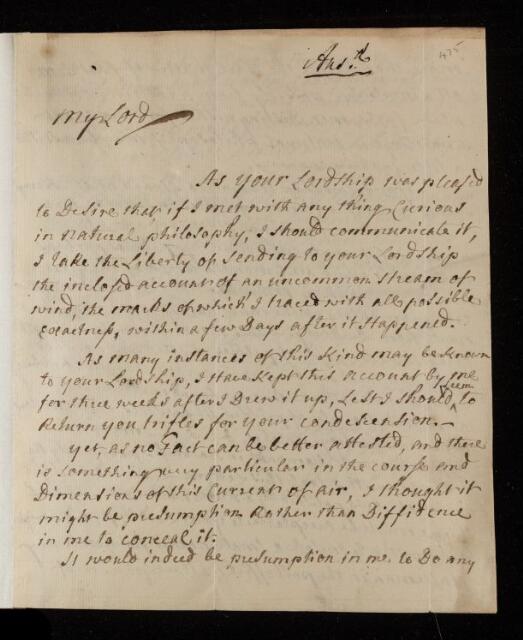 Ans.d
475
My Lord
As your Lordship was pleased
to Desire that if I met with any thing Curious
in natural philosophy, I should communicate it,
I take the Liberty of sending to your Lordship
the inclosed account of an uncommon stream of
wind, the marks of which I traced with all possible
exactness, within a few Days after it Happened.
As many instances of this Kind may be Known
to your Lordship, I Have Kept this account by me
for three weeks after I Drew it up, Lest I should seem to
Return you trifles for your condescension.
yet, as no Fact can be better attested, and there
is something very particular in the course and
Dimensions of this Current of air, I thought it
might be presumption Rather than Diffidence
in me to conceal it.
It would indeed be presumption in me to Do any